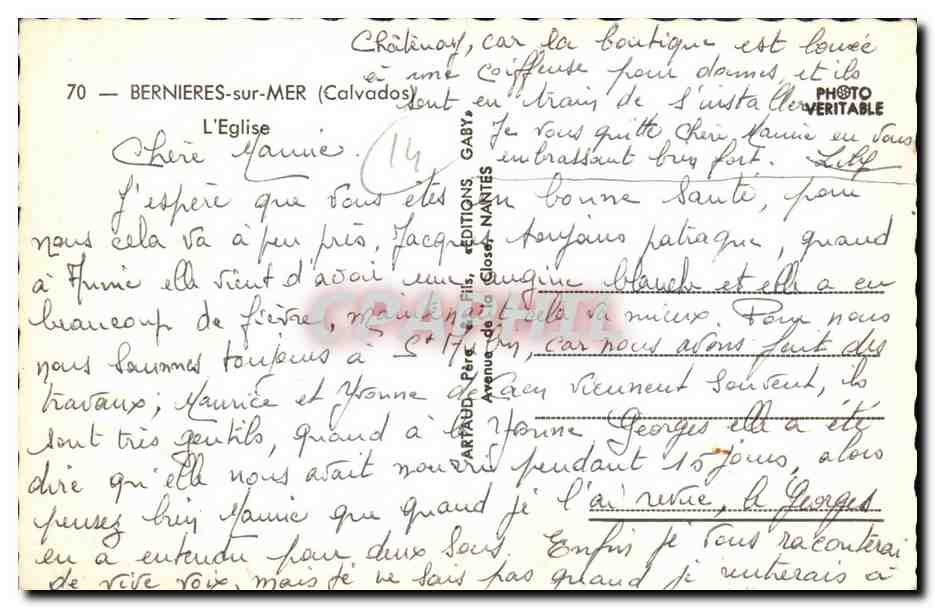 70 — BERNIERES-sur-MER (Calvados)
L'Eglise
PHOTO
VERITABLE
ARTAUD Père et Fils, «EDITIONS GABY»
Avenue de la Close, NANTES
14
Chère Mamie.
J'espère que vous êtes en bonne santé, pour
nous cela va à peu près, Jacques toujours patraque, quand
à Annie elle vient d'avoir une angine blanche et elle a eu
beaucoup de fièvre, maintenant cela va mieux. Pour nous
nous sommes toujours à St car nous avons fait des
travaux; Maurice et Yvonne de Caen viennent souvent, ils
sont très gentils, quand à la Georges elle a été
dire qu'elle nous avait nourri pendant 15 jours, alors
pensez bien Mamie que quand je l'ai revue, la Georges
en a entendu pour deux sous. Enfin je vous raconterai
de vive voix, mais je ne sais pas quand je rentrerais à
Châtenay, car la boutique est louée
à une coiffeuse pour dames, et ils
sont en train de s'installer
Je vous quitte chère Mamie en vous
embrassant bien fort.